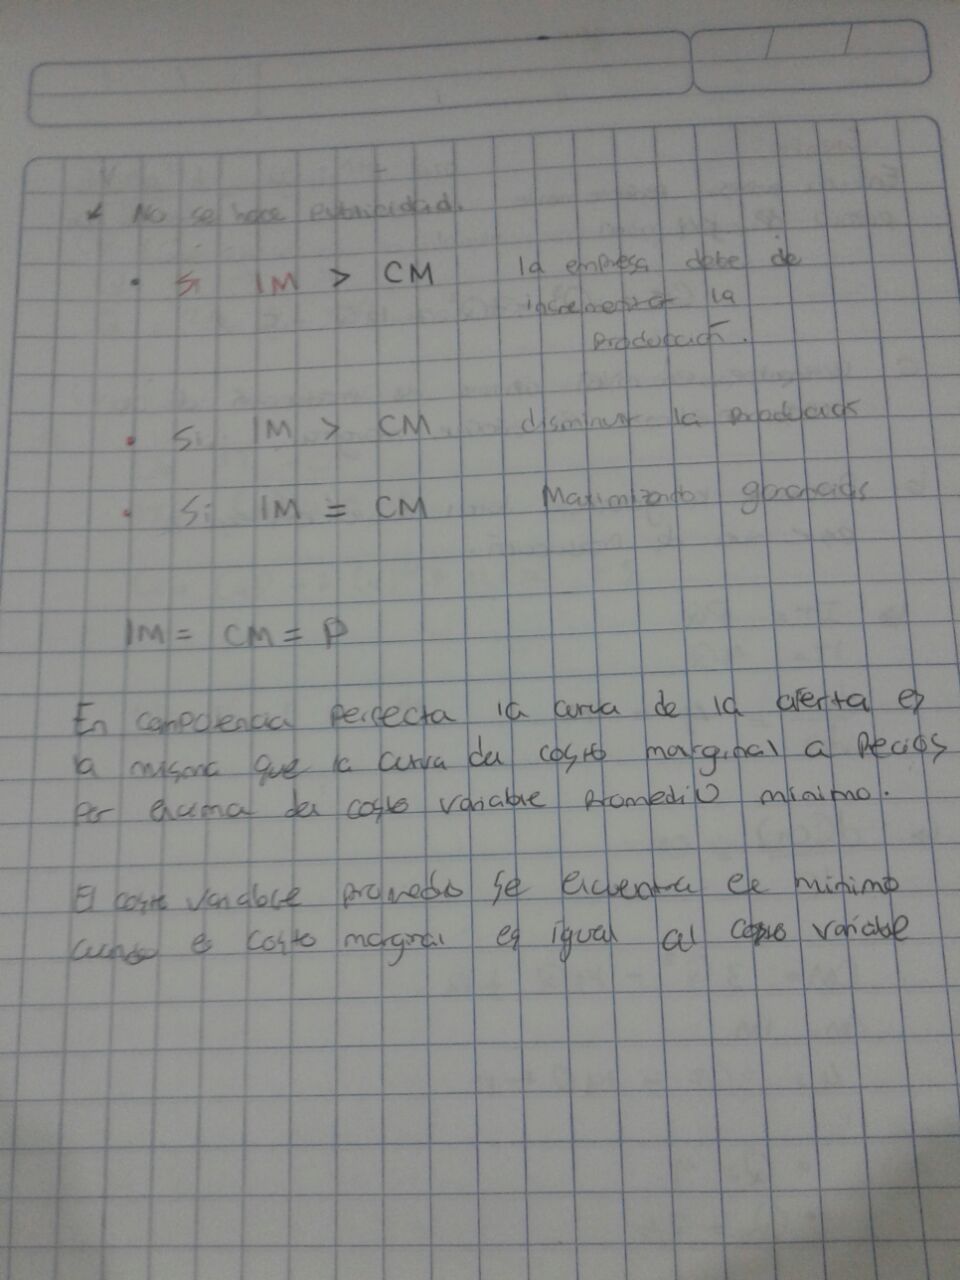 * No se hace publicidad.
• Si IM > CM la empresa debe de
incrementar la
producción.
• Si IM > CM disminuir la producción
• Si IM = CM Maximizando ganancias
IM = CM = P
En competencia perfecta la curva de la oferta es
la misma que la curva del costo marginal a precios
por encima del costo variable promedio mínimo.
El costo variable promedio se encuentra en mínimo
cuando el costo marginal es igual al costo variable